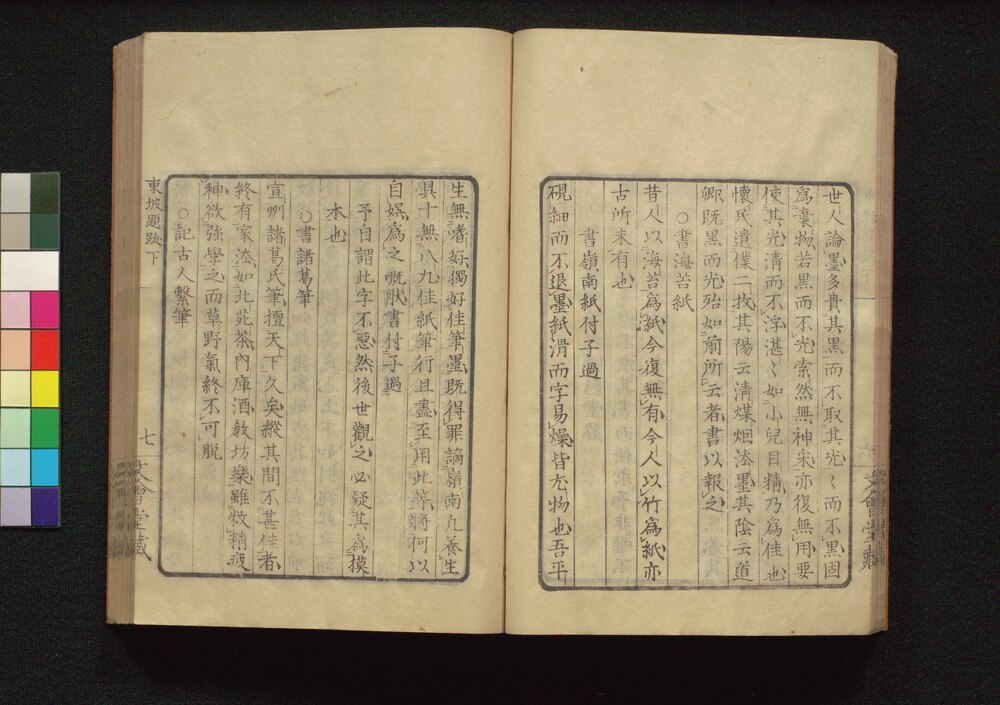 世人論墨多貴其黑而不取其光〻而不黑固
爲棄物若黑而不光索然無神采亦復無用要
使其光清而不浮湛〻如小兒目精乃爲佳也
懷民遺僕二枚其陽云淸煤烟法墨其陰云道
卿旣黑而光殆如前所云者書以報之
○書海苔紙
昔人以海苔爲紙今復無有今人以竹爲紙亦
古所未有也
書嶺南紙付子過
硯細而不退墨紙滑而字易燥皆尤物也吾平
生無嗜好獨好佳筆墨旣得罪謫嶺南凡養生
具十無八九佳紙筆行且盡至用此等將何以
自娛爲之嘅肰書付子過
予自謂此字不惡然後世觀之必疑其爲摸
本也
○書諸葛筆
宣州諸葛氏筆擅天下久矣縱其間不甚佳者
終有家法如北苑茶內庫酒敎坊樂雖敝精疲
神欲強學之而草野氣終不可脫
○記古人繫筆
東坡題跋下
七
文會堂藏